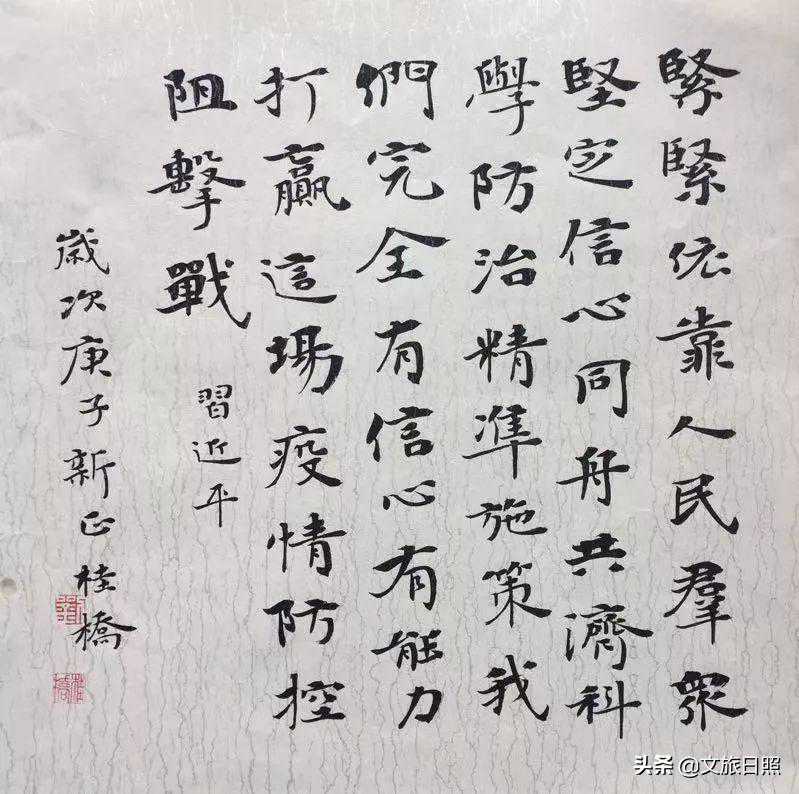 緊緊依靠人民羣衆
堅定信心同舟共濟科
學防治精準施策我
們完全有信心有能力
打贏這場疫情防控
阻擊戰
習近平
歲次庚子新正桂橋
头条 @文旅日照